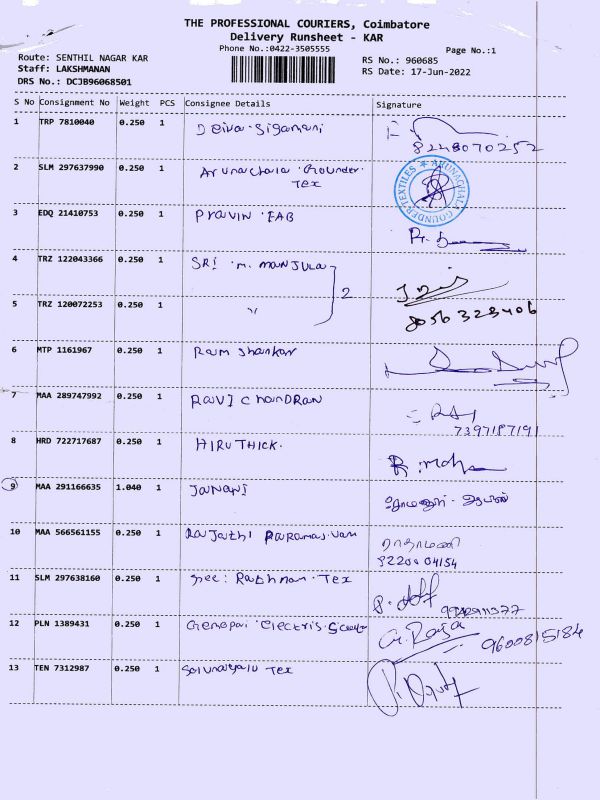 THE PROFESSIONAL COURIERS, Coimbatore
Delivery Runsheet - KAR
Phone No.:0422-3505555
Page No.:1
Route: SENTHIL NAGAR KAR
Staff: LAKSHMANAN
DRS No.: DCJB96068501
RS No.: 960685
RS Date: 17-Jun-2022
S No Consignment No Weight PCS Consignee Details Signature
1 TRP 7810040 0.250 1 Deiva Sigamani
8248070252
2 SLM 297637990 0.250 1 Arunachala Gounder
Tex
ARUNACHALA GOUNDER TEXTILES
3 EDQ 21410753 0.250 1 Pravin FAB
4 TRZ 122043366 0.250 1 SRI M. MANJULA
2
5 TRZ 120072253 0.250 1 "
8056 328406
6 MTP 1161967 0.250 1 Ram Shankar
7 MAA 289747992 0.250 1 RAVI CHANDRAN
7397187191
8 HRD 722717687 0.250 1 HIRUTHICK.
9 MAA 291166635 1.040 1 JANANI
10 MAA 566561155 0.250 1 Rajathi Paramasivam
ராதாமணி
82200 04154
11 SLM 297638160 0.250 1 Tex
12 PLN 1389431 0.250 1
G. Raja
9600815184
13 TEN 7312987 0.250 1 Tex